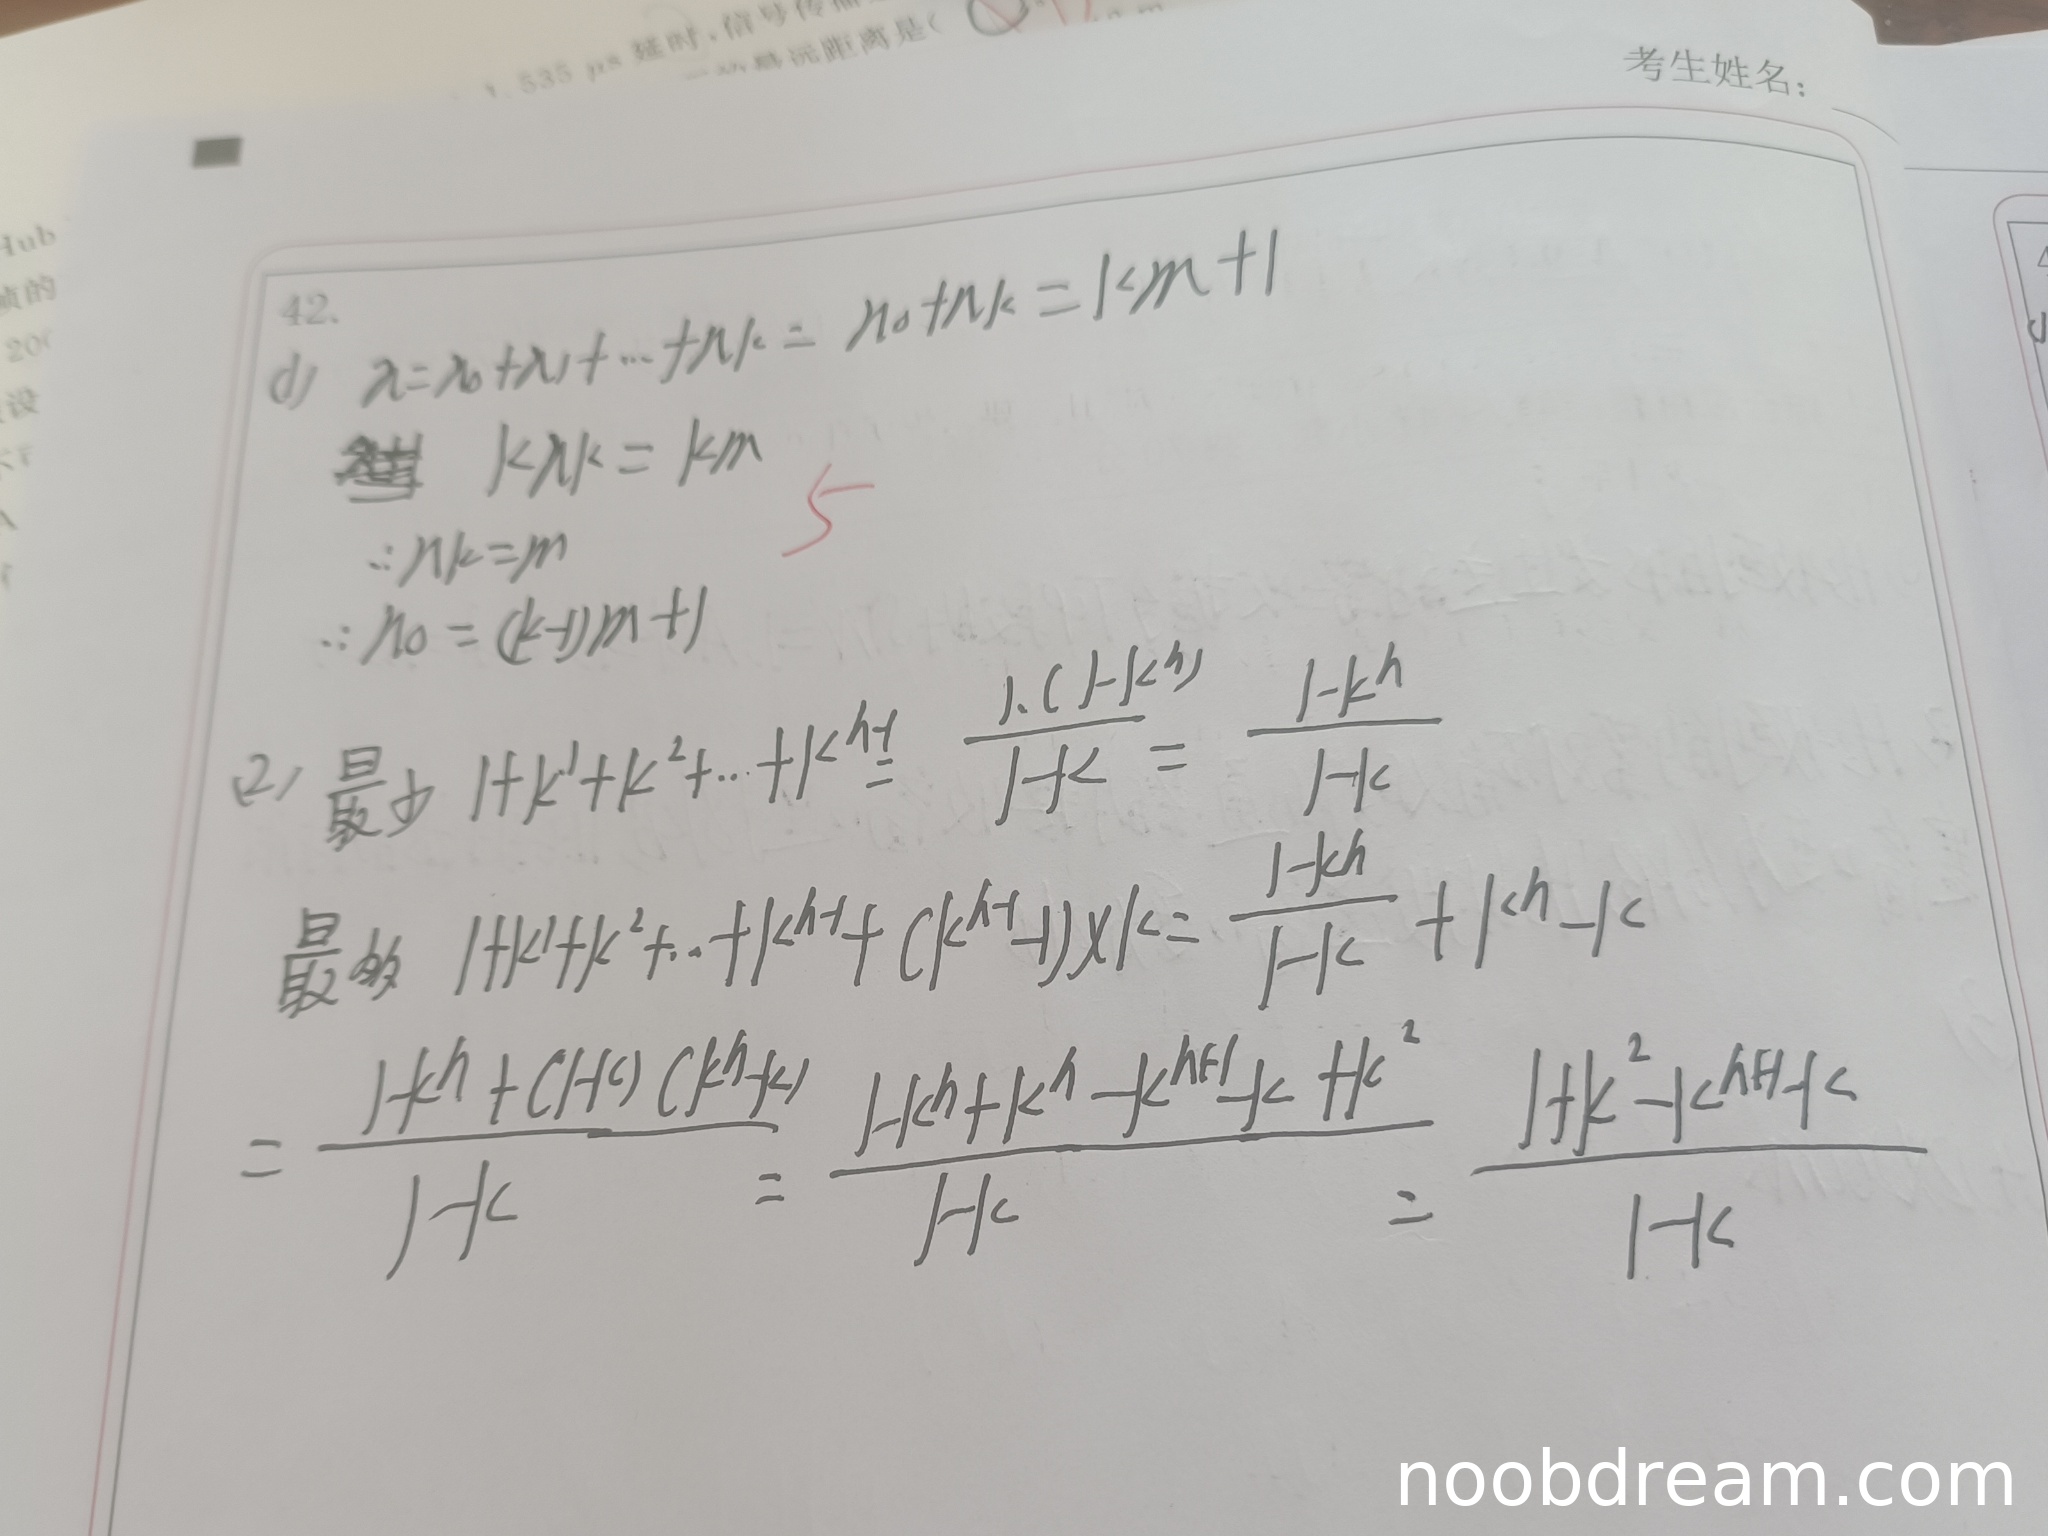 1.535 μs 延时,信号传
最远距离是(
考生姓名:
Hub
帧的
200
设
42.
(1) n=n0+n1+...+nk = n0+nk = km+1
knk = km
∴nk=m
∴n0=(k-1)m+1
5
(2) 最少 1+k^1+k^2+...+k^{h-1} = 1·(1-k^h)/(1-k) = (1-k^h)/(1-k)
最多 1+k^1+k^2+...+k^{h-1}+(k^{h-1}-1)×k = (1-k^h)/(1-k) + k^h-k
= (1-k^h+(1-k)(k^h-k))/(1-k) = (1-k^h+k^h-k^{h+1}-k+k^2)/(1-k) = (1+k^2-k^{h+1}-k)/(1-k)
noobdream.com